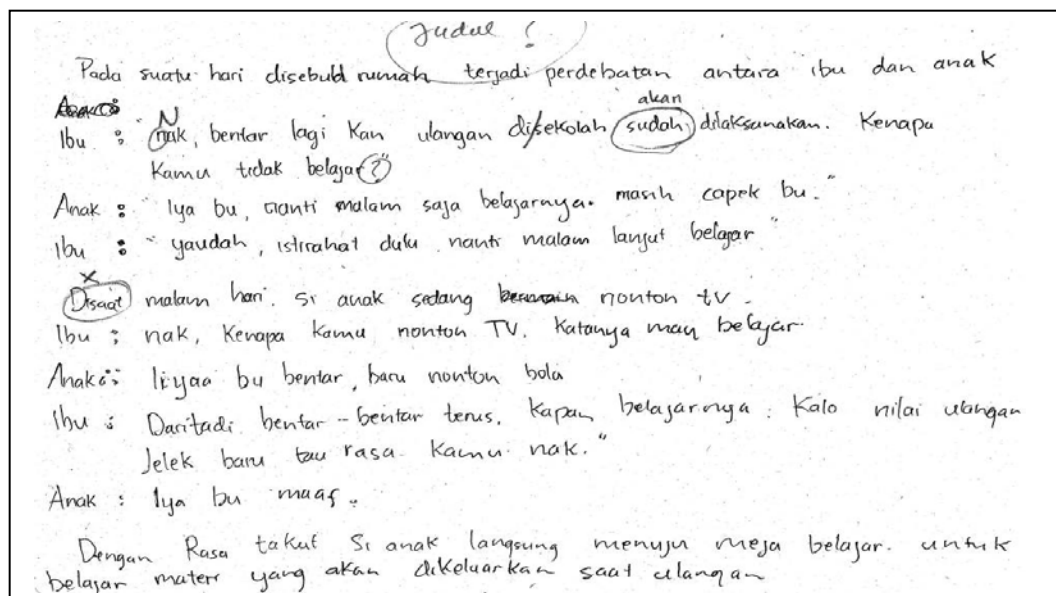 Judul ?
Pada suatu hari disebuah rumah terjadi perdebatan antara ibu dan anak
akan
N
Ibu : "nak, bentar lagi kan ulangan di sekolah sudah dilaksanakan. Kenapa
kamu tidak belajar?"
Anak : "Iya bu, nanti malam saja belajarnya. masih capek bu."
Ibu : "yaudah, istirahat dulu nanti malam lanjut belajar"
x
Disaat malam hari. si anak sedang bermain nonton tv.
Ibu : nak, kenapa kamu nonton TV. Katanya mau belajar.
Anak : Iiyaa bu bentar, baru nonton bola
Ibu : Daritadi bentar-bentar terus. Kapan belajarnya. Kalo nilai ulangan
Jelek baru tau rasa kamu nak."
Anak : Iya bu maaf.
Dengan Rasa takut Si anak langsung menuju meja belajar. untuk
belajar materi yang akan dikeluarkan saat ulangan